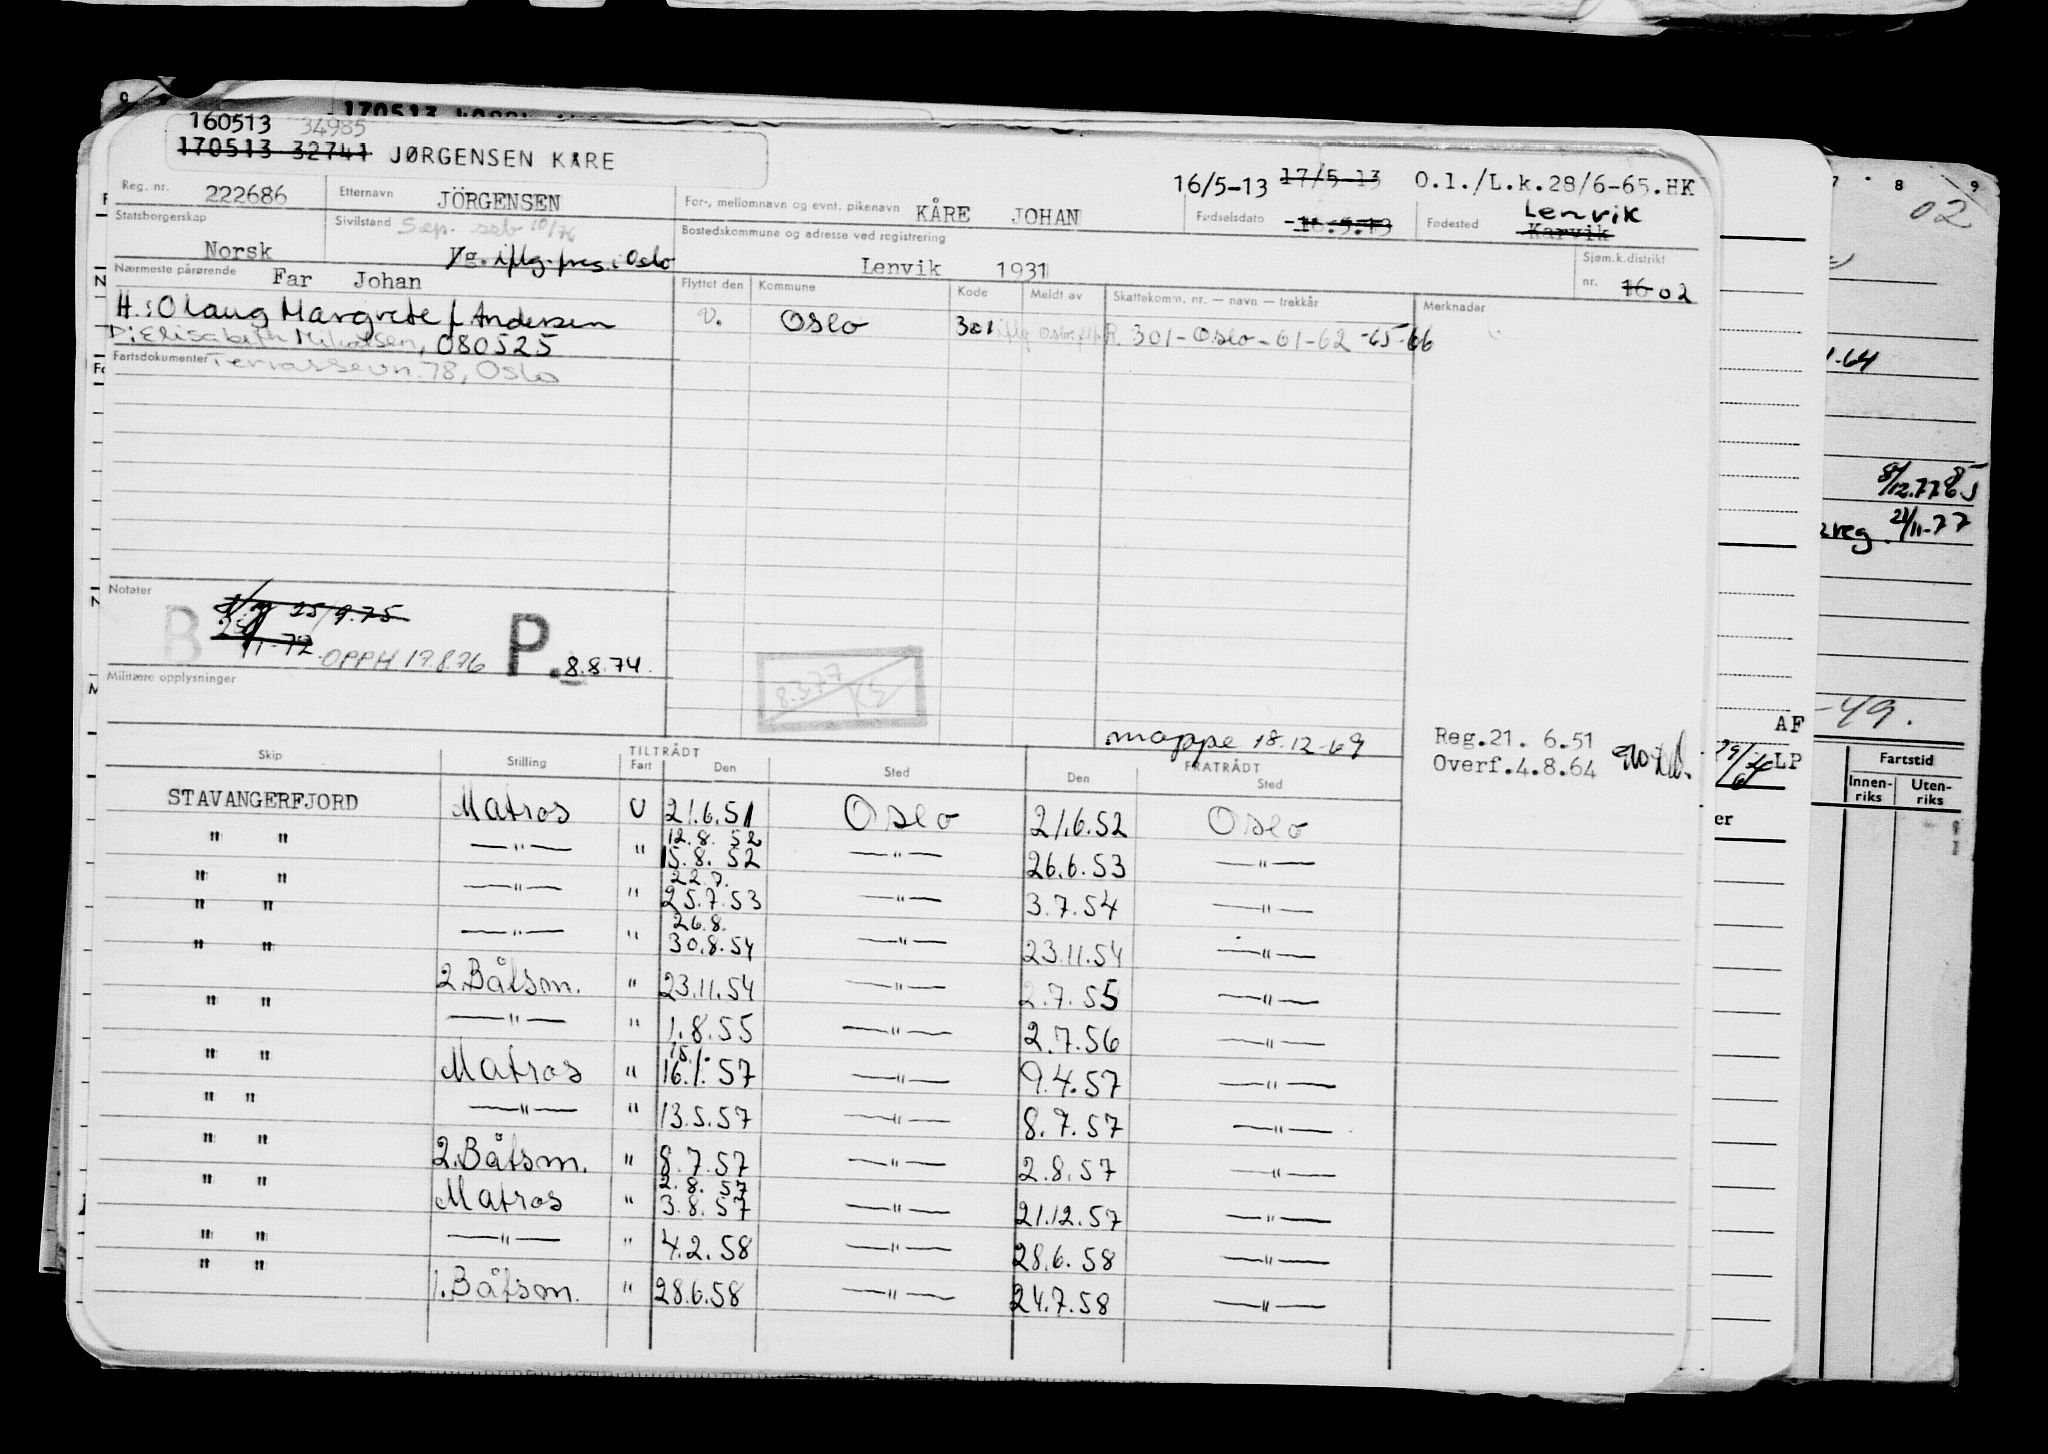 160513 34985
170513 32741 JØRGENSEN KÅRE
16/5-13 17/5-13 O.l./L.k.28/6-65.HK
Reg. nr. 222686 Etternavn JÖRGENSEN For-, mellomnavn og evnt. pikenavn KÅRE JOHAN Fødselsdato 16.5.13 Fødested Lenvik Karvik
Statsborgerskap Norsk Sivilstand Sep. 10/76 Yg. iflg. pres. i Oslo Bostedskommune og adresse ved registrering Lenvik 1931 Sjøm.k.distrikt nr. 16 02
Nærmeste pårørende Far Johan Flyttet den Kommune Kode Meldt av Skattekomm. nr. — navn — trekkår Merknader
H: Olaug Margrete f. Andersen v. Oslo 301 301-Oslo-61-62-65-66
D: Elisabeth Mikalsen, 080525
Fartsdokumenter Terrassevn. 78, Oslo
Notater
B 25/9.75
11-72 OPPH 17.8.76 P. 8.8.74.
8.3.77
Militære opplysninger
mappe 18.12-69
Reg.21. 6.51
Overf.4.8.64
Skip Stilling TILTRÅDT Fart Den Sted FRATRÅDT Den Sted
STAVANGERFJORD Matros U 21.6.51 Oslo 21.6.52 Oslo
" " —"— " 12.8.52 15.8.52 —"— 26.6.53 —"—
" " —"— " 22.7. 25.7.53 —"— 3.7.54 —"—
" " —"— " 26.8. 30.8.54 —"— 23.11.54 —"—
" " 2.Båtsm. " 23.11.54 —"— 2.7.55 —"—
" " —"— " 1.8.55 —"— 2.7.56 —"—
" " Matros " 15.1. 16.1.57 —"— 9.4.57 —"—
" " —"— " 13.5.57 —"— 8.7.57 —"—
" " 2.Båtsm. " 8.7.57 —"— 2.8.57 —"—
" " Matros " 2.8.57 3.8.57 —"— 21.12.57 —"—
" " —"— " 4.2.58 —"— 28.6.58 —"—
" " 1.Båtsm. " 28.6.58 —"— 24.7.58 —"—
AF
LP
er
7 8 9
02
-64
8/12.77
reg. 21/11-77
-49.
Fartstid
Innen-riks Uten-riks